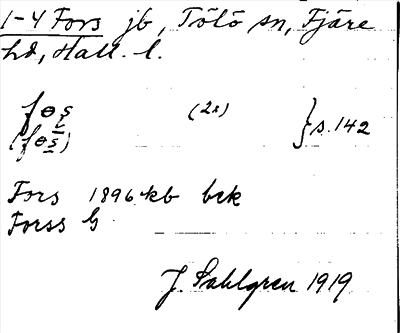 1-4 Fors jb, Tölö sn, Fjäre
hd, Hall. l.
fɵș (2x) } s. 142
(fɵș̱̄)
Fors 1896 kb bek
Forss G
J. Sahlgren 1919